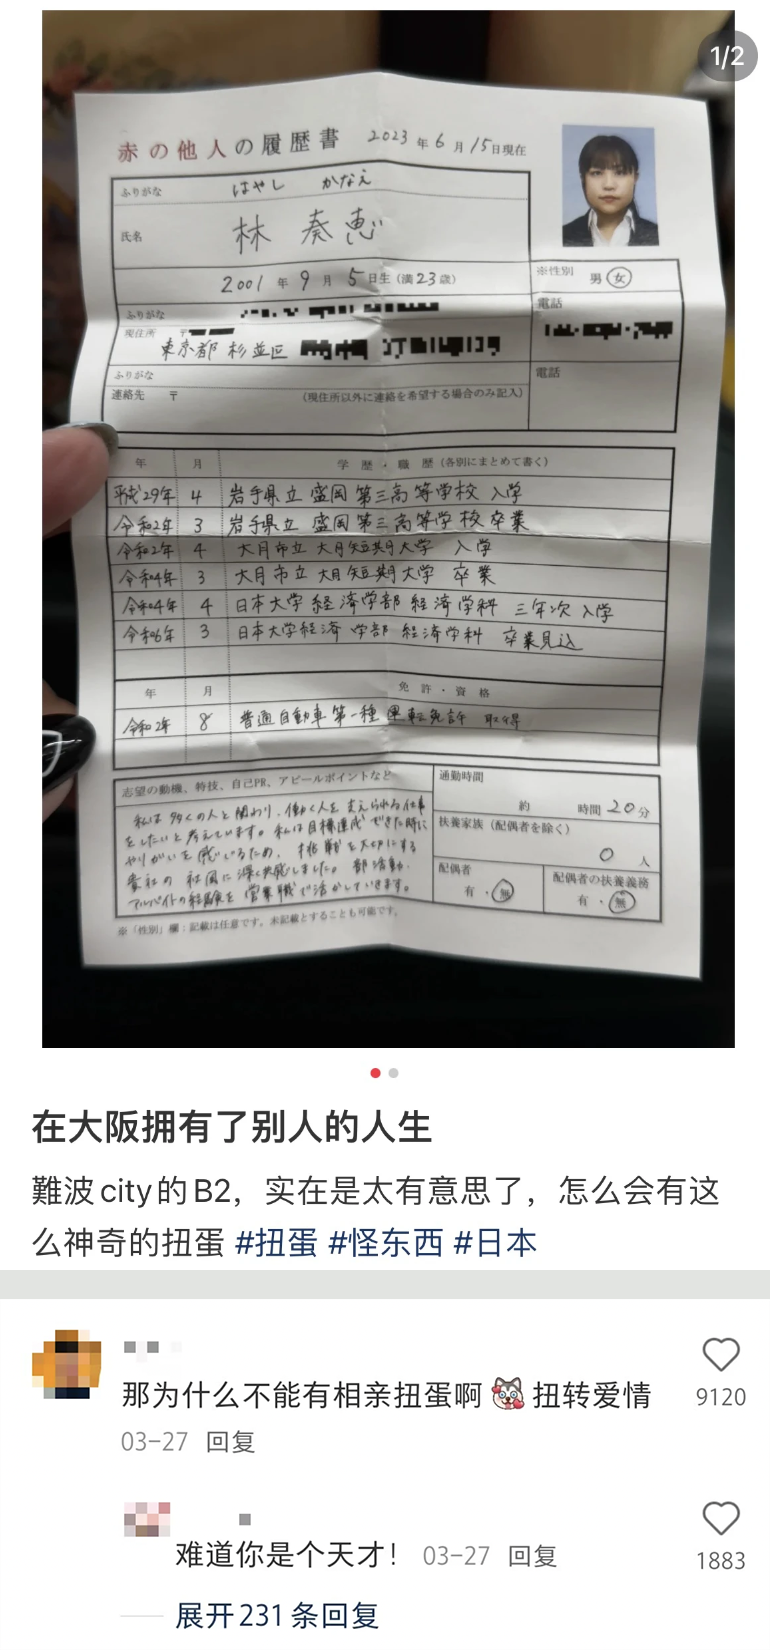 1/2
赤の他人の履歴書 2023年6月15日現在
ふりがな はやし かなえ
氏名 林 奏恵
2001年9月5日生(満23歳)
※性別 男 女
ふりがな
電話
現住所 〒
東京都 杉並区
ふりがな
電話
連絡先 〒 (現住所以外に連絡を希望する場合のみ記入)
年 月 学歴・職歴(各別にまとめて書く)
平成29年 4 岩手県立 盛岡第三高等学校 入学
令和2年 3 岩手県立 盛岡第三高等学校 卒業
令和2年 4 大月市立 大月短期大学 入学
令和4年 3 大月市立 大月短期大学 卒業
令和4年 4 日本大学 経済学部 経済学科 三年次 入学
令和6年 3 日本大学 経済学部 経済学科 卒業見込
年 月 免許・資格
令和2年 8 普通自動車第一種運転免許 取得
志望の動機、特技、自己PR、アピールポイントなど
私は多くの人と関わり、働く人を支えられる仕事
をしたいと考えています。私は目標達成できた時に
やりがいを感じるため、挑戦を大切にする
貴社の社風に深く共感しました。部活動、
アルバイトの経験を営業職で活かしていきます。
通勤時間
約 時間 20分
扶養家族(配偶者を除く)
0 人
配偶者
有・無
配偶者の扶養義務
有・無
※「性別」欄:記載は任意です。未記載とすることも可能です。
在大阪拥有了别人的人生
難波city的B2，实在是太有意思了，怎么会有这
么神奇的扭蛋 #扭蛋 #怪东西 #日本
那为什么不能有相亲扭蛋啊 扭转爱情
9120
03-27 回复
难道你是个天才！ 03-27 回复
1883
展开231条回复